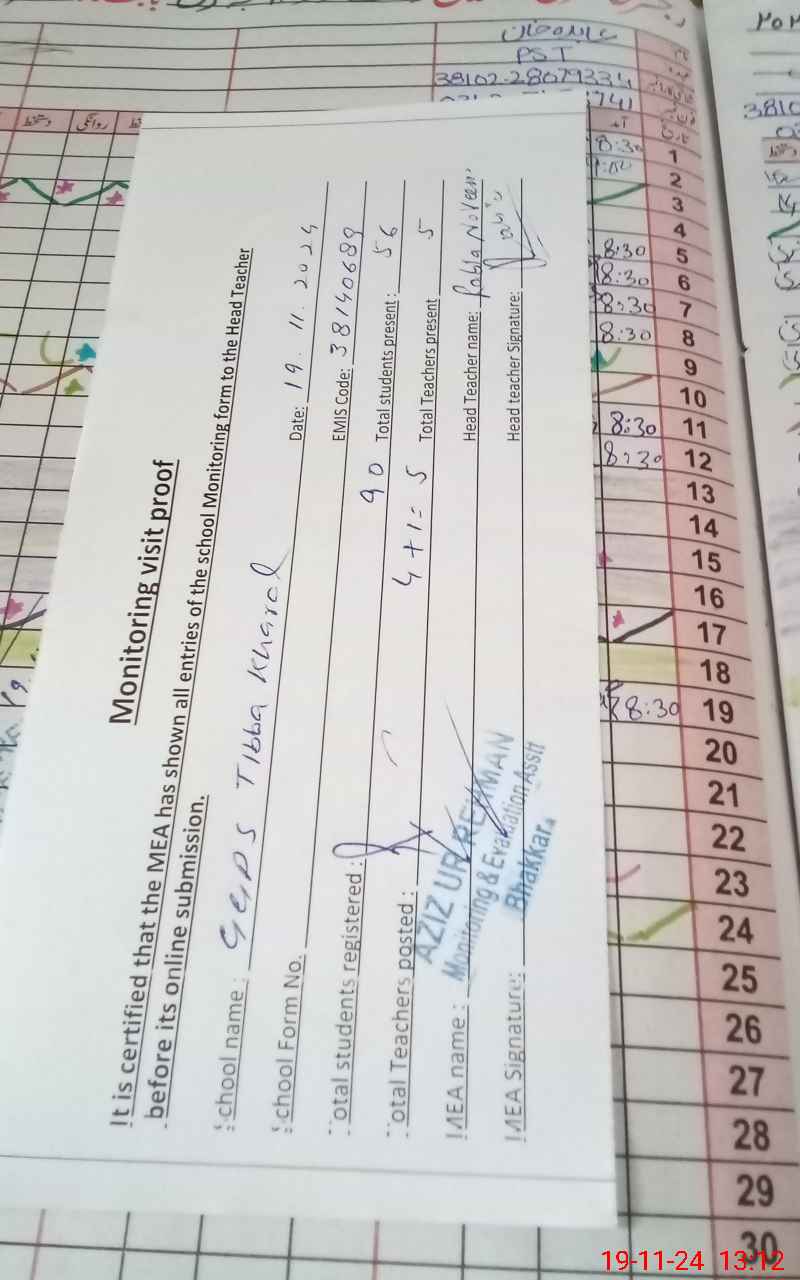 PST
38102-2807933
Monitoring visit proof
It is certified that the MEA has shown all entries of the school Monitoring form to the Head Teacher
before its online submission.
School name: GGPS Tibba Kharal Date: 19.11.2024
School Form No. EMIS Code: 38140689
Total students registered: 90 Total students present: 56
Total Teachers posted: 4+1=5 Total Teachers present 5
MEA name: Head Teacher name: Noveen
MEA Signature: Head teacher Signature:
AZIZ UR REHMAN
Monitoring & Evaluation Assit
Bhakkar.
روانگی
دستخط
8:30 1
2
3
4
8:30 5
8:30 6
8:30 7
8:30 8
9
10
8:30 11
8:30 12
13
14
15
16
17
18
8:30 19
20
21
22
23
24
25
26
27
28
29
30
19-11-24 13:12